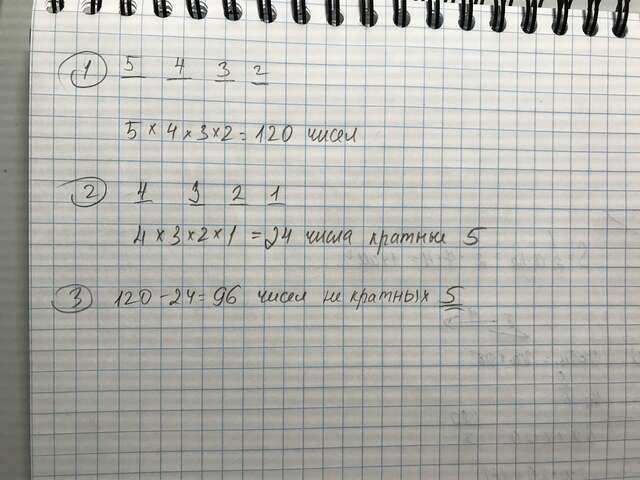 1 5 4 3 2
5 × 4 × 3 × 2 = 120 чисел
2 4 3 2 1
4 × 3 × 2 × 1 = 24 числа кратные 5
3 120 - 24 = 96 чисел не кратных 5